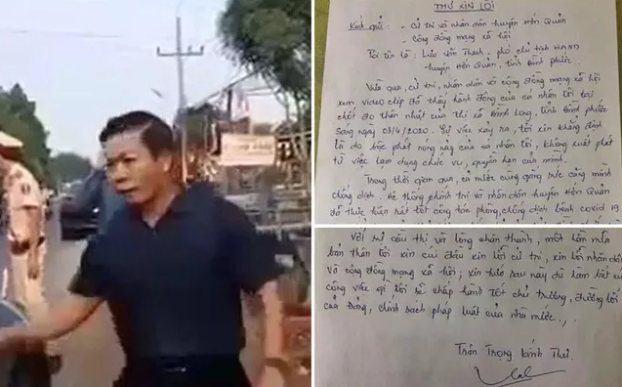 THƯ XIN LỖI
Kính gửi: - Cử tri và nhân dân huyện Hớn Quản
- Cộng đồng mạng xã hội
Tôi tên là: Lưu Văn Thanh - phó chủ tịch HĐND
huyện Hớn Quản, tỉnh Bình Phước.
Vừa qua, cử tri, nhân dân và cộng đồng mạng xã hội
xem video clip đã thấy hành động của cá nhân tôi tại
chốt đo thân nhiệt của thị xã Bình Long, tỉnh Bình Phước
sáng ngày 03/4/2020. Sự việc xảy ra, tôi xin khẳng định
là do bộc phát nóng nảy của cá nhân tôi, không xuất phát
từ việc lạm dụng chức vụ, quyền hạn của mình.
Trong thời gian qua, cả nước cùng gồng sức cùng mình
chống dịch. Hệ thống chính trị và nhân dân huyện Hớn Quản
đã thực hiện rất tốt công tác phòng, chống dịch bệnh covid 19
Với sự cầu thị và lòng chân thành, một lần nữa
bản thân tôi xin cúi đầu xin lỗi cử tri, xin lỗi nhân dân
và cộng đồng mạng xã hội, xin hứa sau này dù làm bất cứ
công việc gì tôi sẽ chấp hành tốt chủ trương, đường lối
của Đảng, chính sách pháp luật của nhà nước./.
Trân Trọng kính Thư